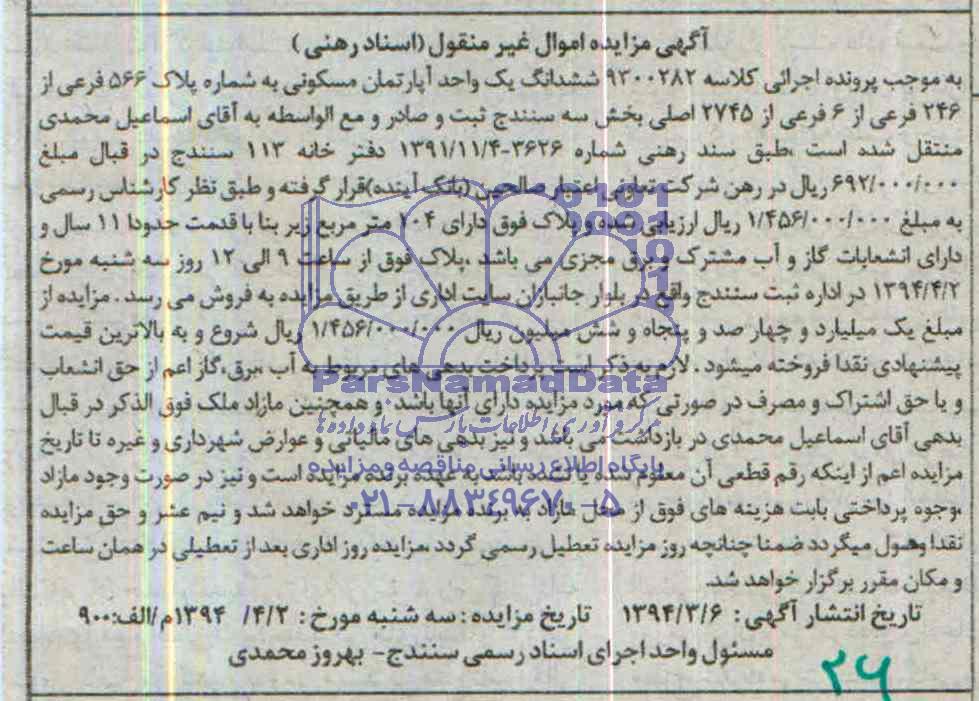 آگهی مزایده اموال غیر منقول (اسناد رهنی)
به موجب پرونده اجرائی کلاسه ۹۳۰۰۲۸۲ ششدانگ یک واحد آپارتمان مسکونی به شماره پلاک ۵۶۶ فرعی از
۲۴۶ فرعی از ۶ فرعی از ۲۷۴۵ اصلی بخش سه سنندج ثبت و صادر و مع الواسطه به آقای اسماعیل محمدی
منتقل شده است ،طبق سند رهنی شماره ۳۶۲۶-۱۳۹۱/۱۱/۴ دفتر خانه ۱۱۳ سنندج در قبال مبلغ
۶۹۲/۰۰۰/۰۰۰ ریال در رهن شرکت تعاونی اعتبار صالحین (بانک آینده)قرار گرفته و طبق نظر کارشناس رسمی
به مبلغ ۱/۴۵۶/۰۰۰/۰۰۰ ریال ارزیابی شده و پلاک فوق دارای ۱۰۴ متر مربع زیر بنا با قدمت حدودا ۱۱ سال و
دارای انشعابات گاز و آب مشترک و برق مجزی می باشد ،پلاک فوق از ساعت ۹ الی ۱۲ روز سه شنبه مورخ
۱۳۹۴/۴/۲ در اداره ثبت سنندج واقع در بلوار جانبازان سایت اداری از طریق مزایده به فروش می رسد . مزایده از
مبلغ یک میلیارد و چهار صد و پنجاه و شش میلیون ریال ۱/۴۵۶/۰۰۰/۰۰۰ ریال شروع و به بالاترین قیمت
پیشنهادی نقدا فروخته میشود . لازم به ذکر است پرداخت بدهی های مربوط به آب ،برق،گاز اعم از حق انشعاب
و یا حق اشتراک و مصرف در صورتی که مورد مزایده دارای آنها باشد و همچنین مازاد ملک فوق الذکر در قبال
بدهی آقای اسماعیل محمدی در بازداشت می باشد و نیز بدهی های مالیاتی و عوارض شهرداری و غیره تا تاریخ
مزایده اعم از اینکه رقم قطعی آن معلوم شده یا نشده باشد به عهده برنده مزایده است و نیز در صورت وجود مازاد
،وجوه پرداختی بابت هزینه های فوق از محل مازاد به برنده مزایده مسترد خواهد شد و نیم عشر و حق مزایده
نقدا وصول میگردد ضمنا چنانچه روز مزایده تعطیل رسمی گردد ،مزایده روز اداری بعد از تعطیلی در همان ساعت
و مکان مقرر برگزار خواهد شد.
تاریخ انتشار آگهی : ۱۳۹۴/۳/۶ تاریخ مزایده : سه شنبه مورخ : ۴/۲/ ۱۳۹۴م/الف:۹۰۰
مسئول واحد اجرای اسناد رسمی سنندج- بهروز محمدی
۲۶
ParsNamadData
مرکز فرآوری اطلاعات پارس نماد داده ها
پایگاه اطلاع رسانی مناقصه و مزایده
۰۲۱-۸۸۳۴۹۶۷۰-۵